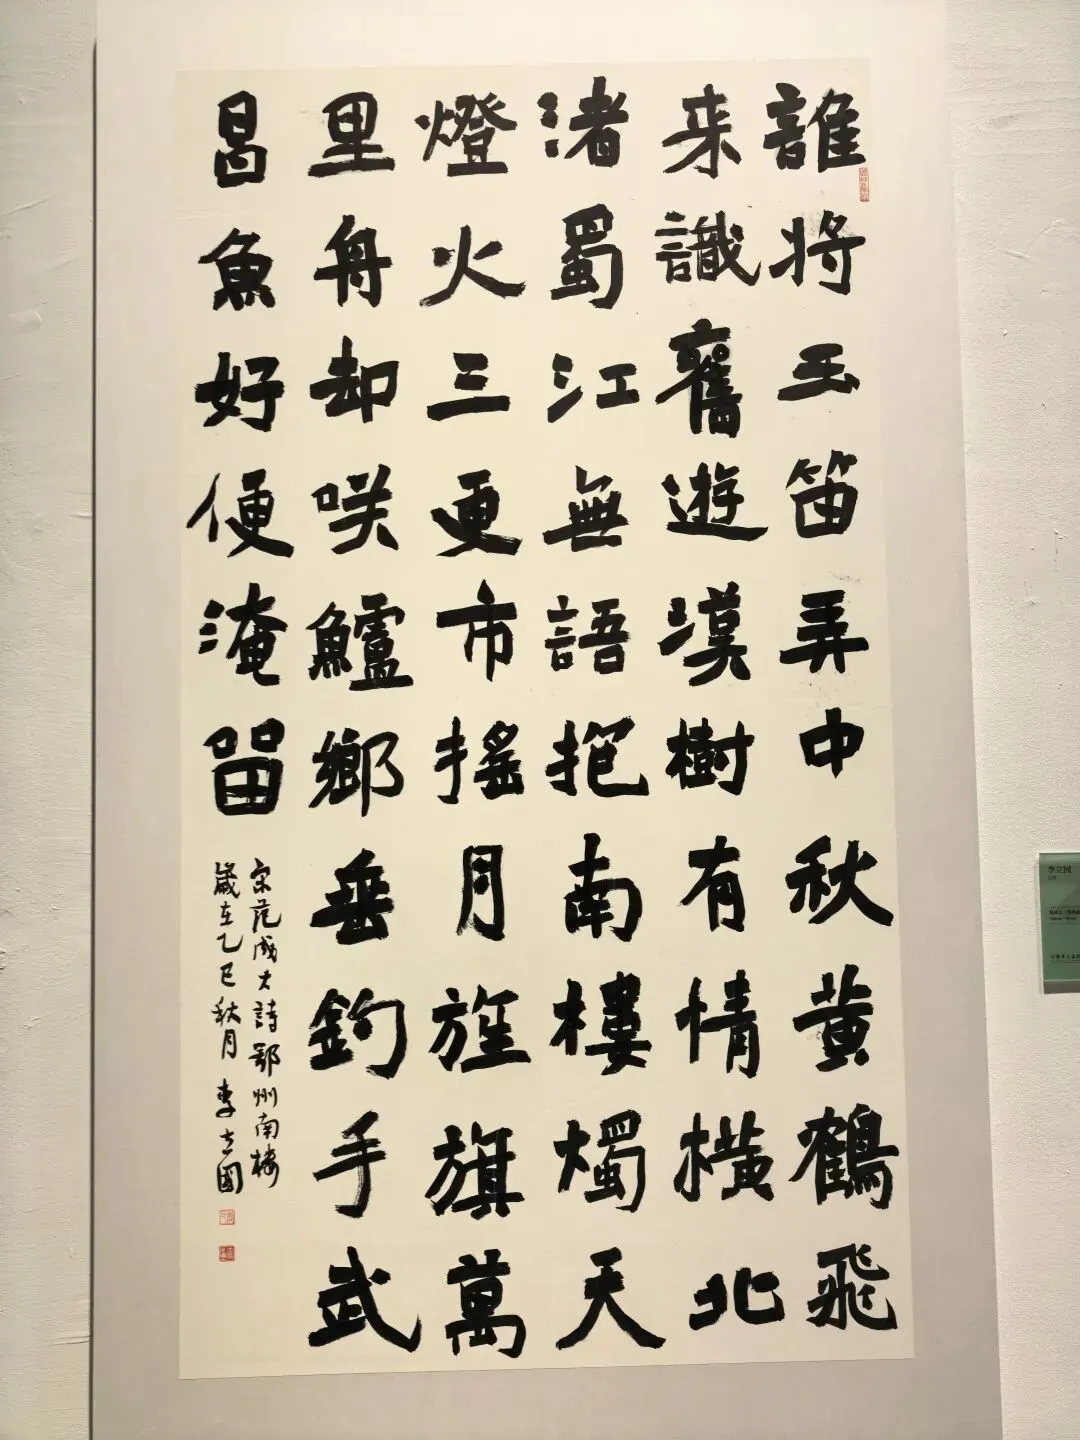 誰将玉笛弄中秋黄鶴飛
来識舊遊漢樹有情橫北
渚蜀江無語抱南樓燭天
燈火三更市摇月旌旗萬
里舟却咲鱸鄉垂釣手武
昌魚好便淹留
宋范成大詩鄂州南楼
歲在乙巳秋月李立國
李立国